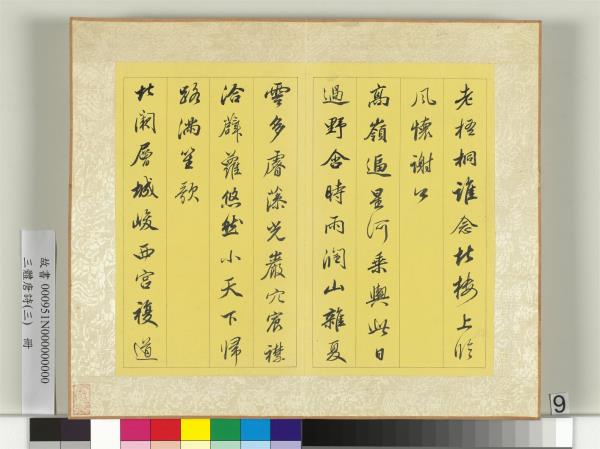 老梧桐誰念北樓上臨
風懷謝公
高嶺逼星河乘輿此日
過野含時雨潤山雜夏
雲多睿藻光巖穴宸襟
洽薜蘿悠然小天下歸
路滿笙歌
北闕層城峻西宮複道
故書 000951N000000000
三體唐詩(三) 冊
9